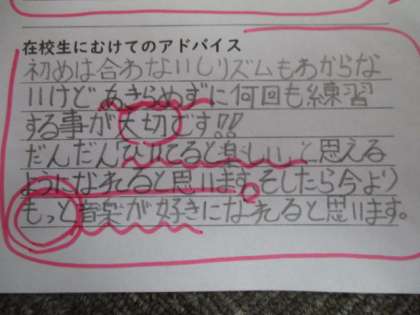 在校生にむけてのアドバイス
初めは合わないしリズムもわからな
いけどあきらめずに何回も練習
する事が大切です!!
だんだんひいてると楽しいと思える
ようになれると思います。そしたら今より
もっと音楽が好きになれると思います。